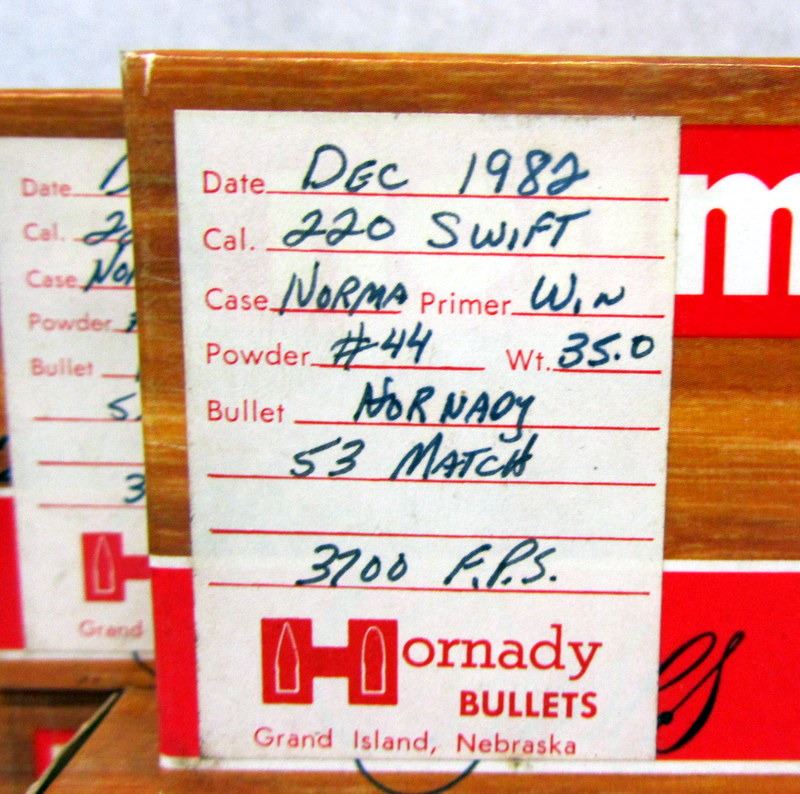 Date DEC 1982
Cal. 220 SWIFT
Case NORMA Primer WIN
Powder #44 Wt. 35.0
Bullet HORNADY
53 MATCH
3700 F.P.S.
Hornady
BULLETS
Grand Island, Nebraska
m
Date
Cal.
Case
Powder
Bullet
Grand